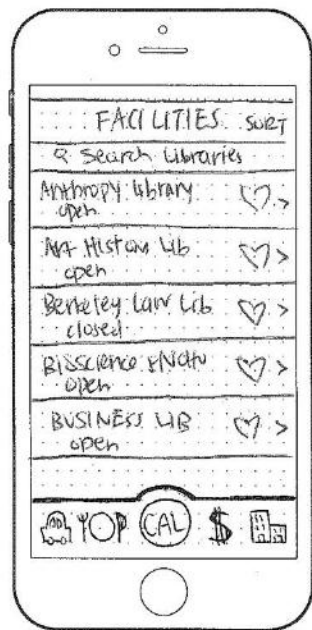 FACILITIES SORT
Search Libraries
Anthropy Library
open
Art History Lib
open
Berkeley Law Lib
closed
Bioscience &
open
BUSINESS LIB
open
CAL $